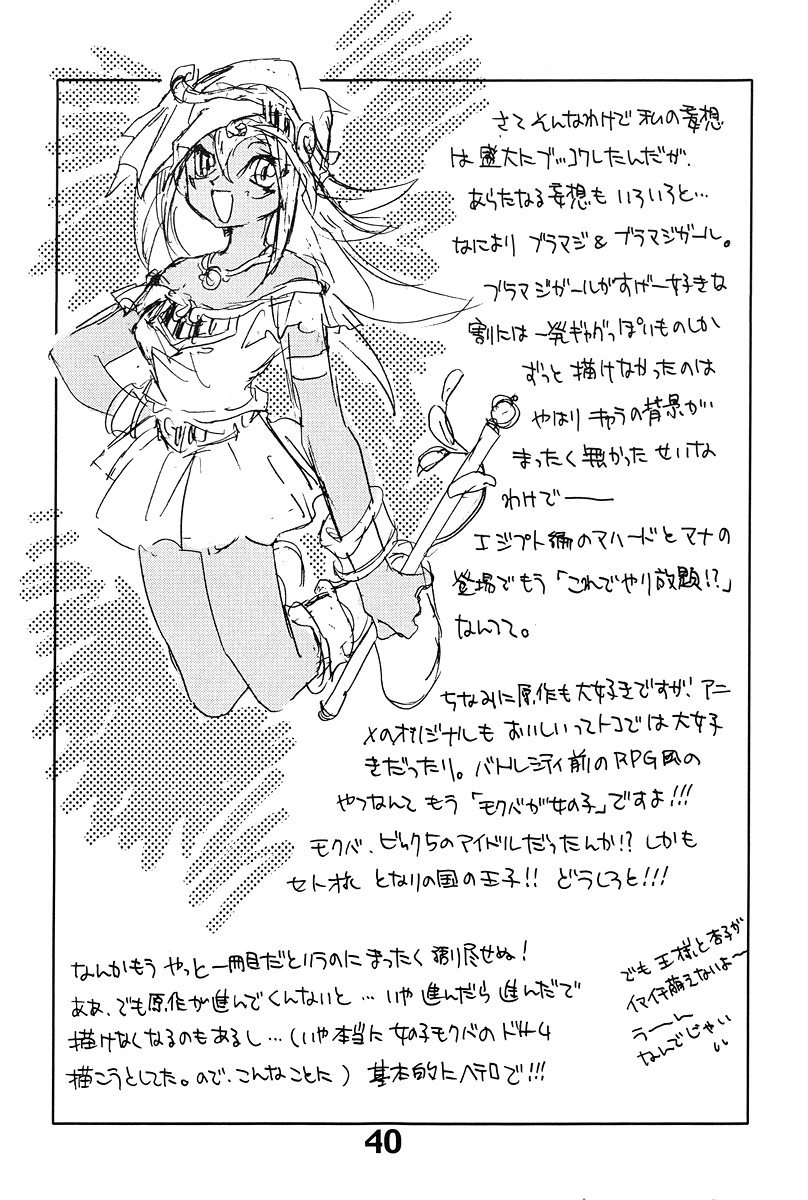 さてそんなわけで私の妄想
は盛大にブッコワしたんだが、
あらたなる妄想もいろいろと…
なにより ブラマジ & ブラマジガール。
ブラマジガールがすげー好きな
割には一発ギャグっぽいものしか
ずっと描けなかったのは
やはりキャラの背景が
まったく無かったせいな
わけで——
エジプト編のマハードとマナの
登場でもう「これでやり放題!?」
なんてて。
ちなみに原作も大好きですが、アニ
メのオリジナルもおいしいってトコでは大好
きだったり。バトルシティ前のRPG風の
やつなんてもう「モクバが女の子」ですよ!!!
モクバ、ビック5のアイドルだったんか!? しかも
セト となりの国の王子!! どうしろと!!!
なんかもうやっと一冊目だというのにまったく 尽せぬ!
ああ、でも原作が進んでくんないと…いや進んだら進んだで
描けなくなるのもあるし…(いや本当に女の子モクバの
描こうとしてた。ので、こんなことに) 基本的にヘテロで!!!
でも王様と杏子が
イマイチ萌えないよ〜
う〜〜ん
なんでじゃい
40